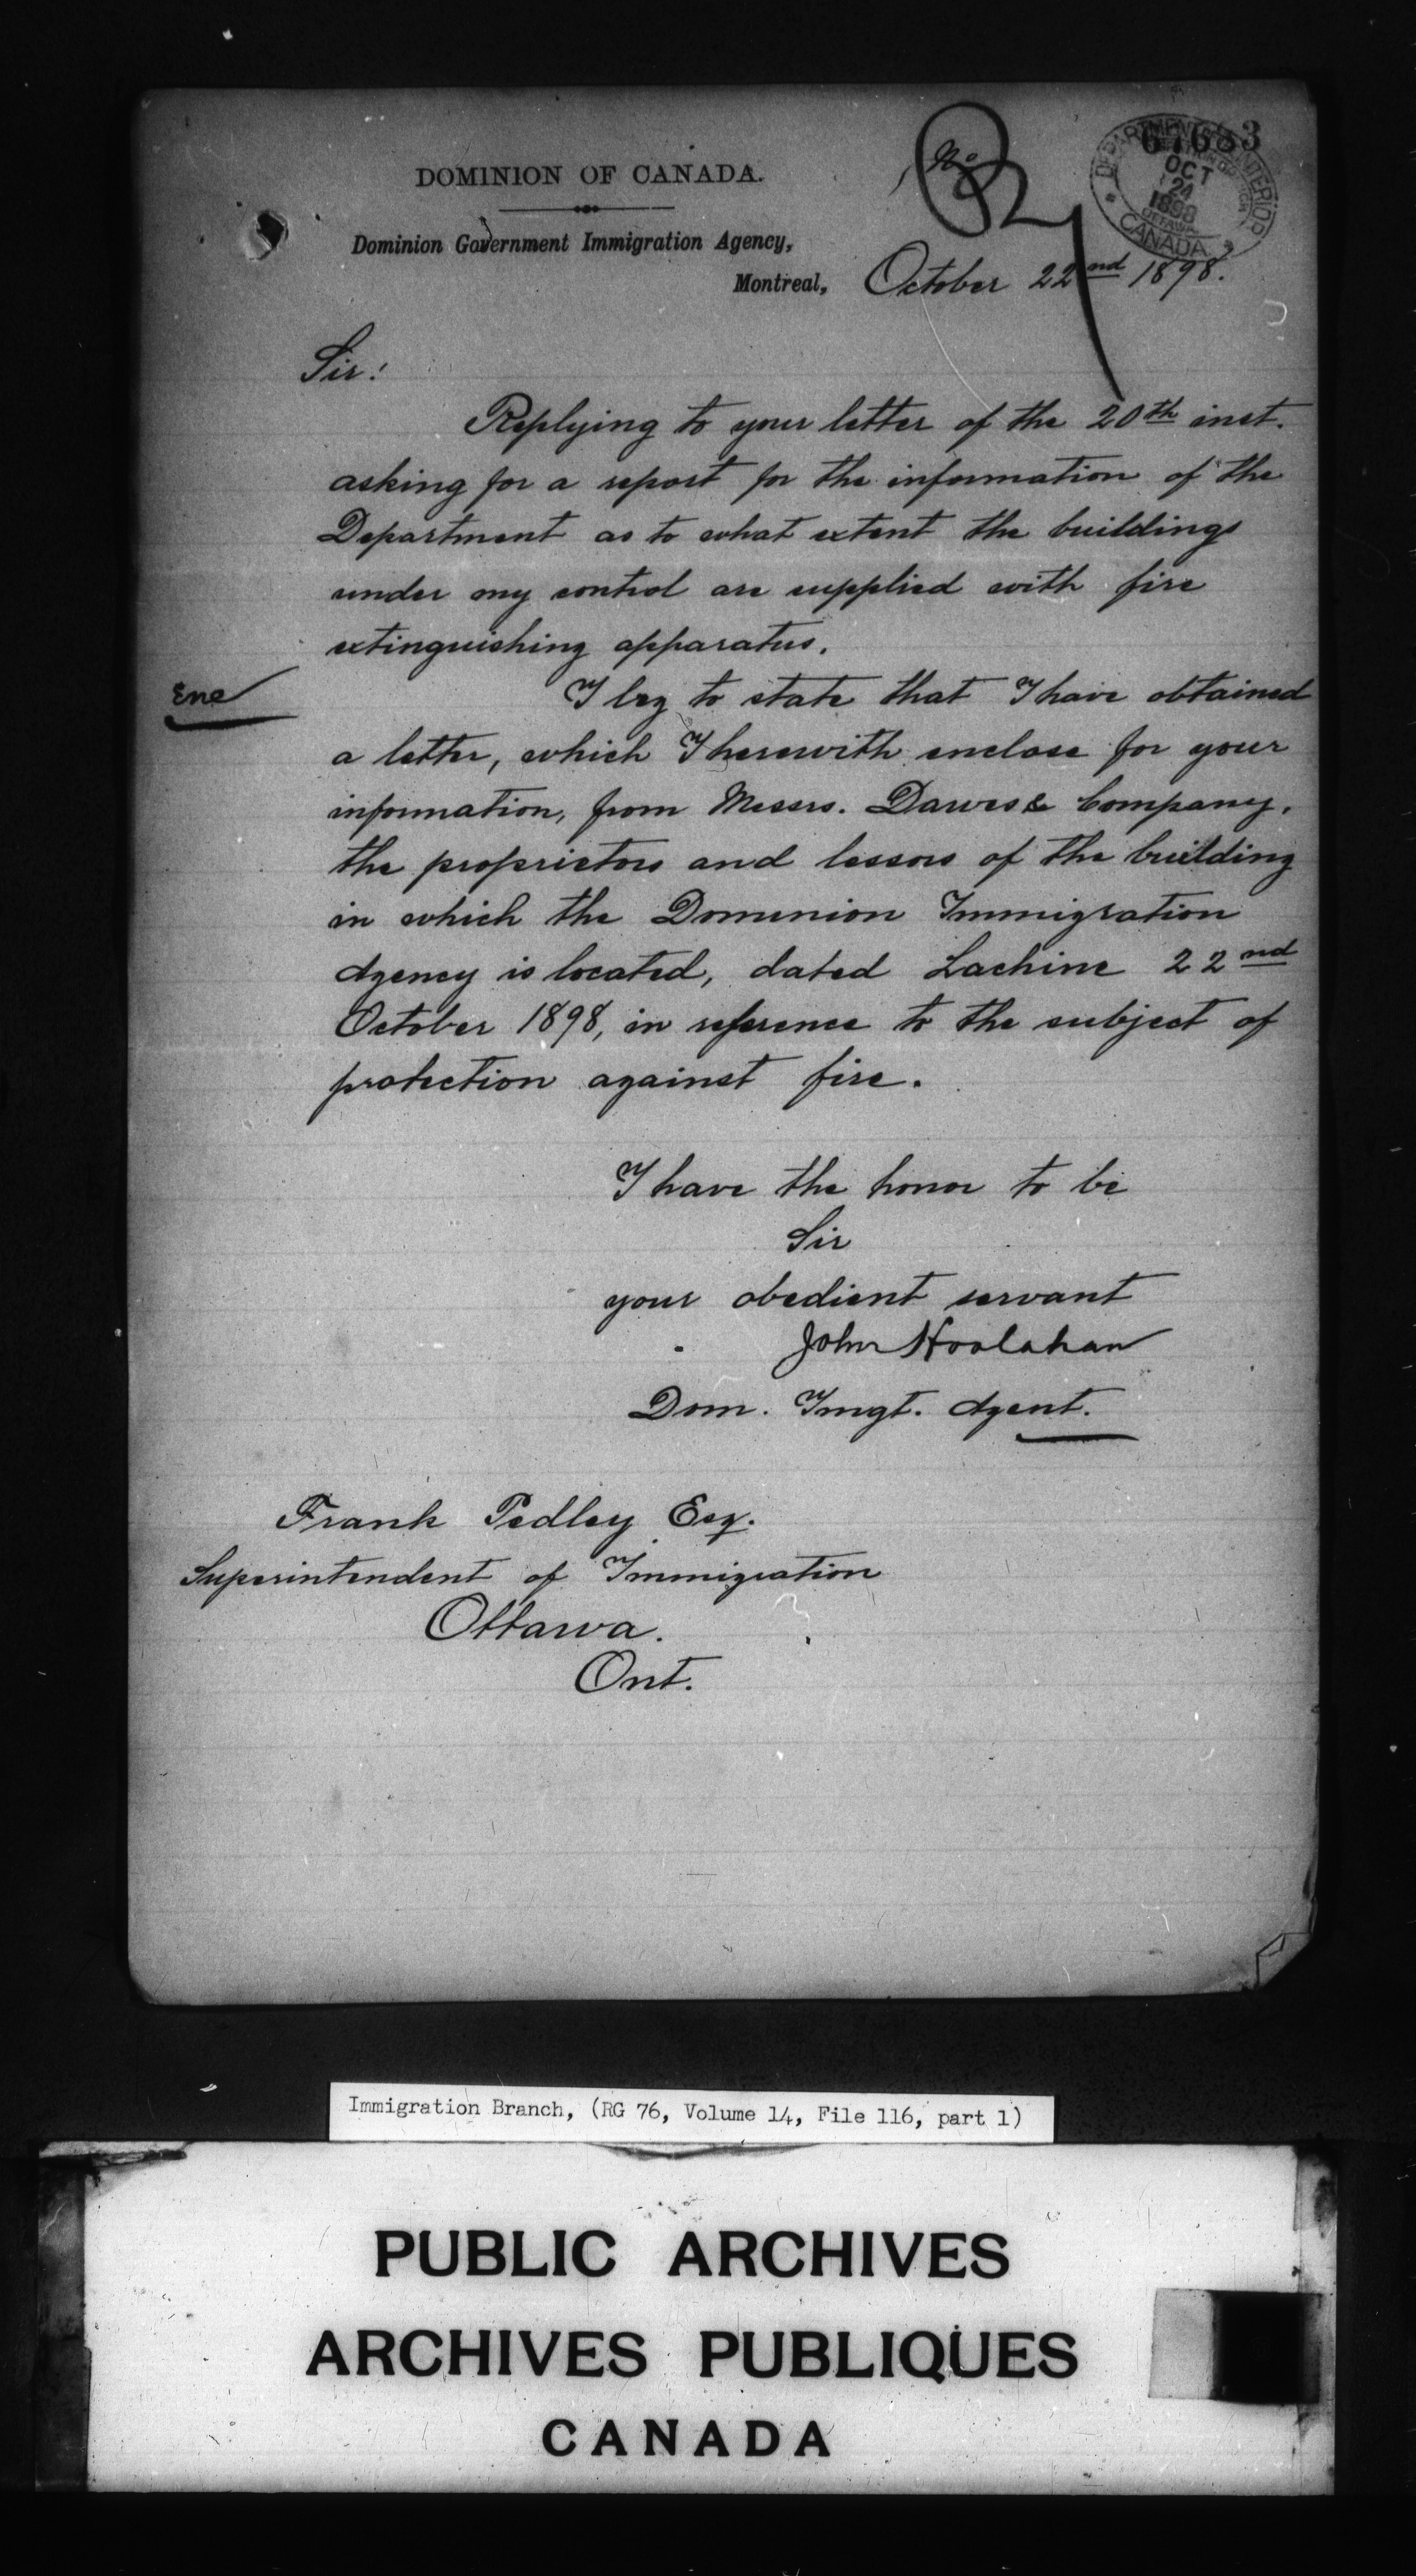 67683
DEPARTMENT OF INTERIOR
OCT
24
1898
OTTAWA
CANADA
DOMINION OF CANADA.
Dominion Government Immigration Agency,
Montreal, October 22nd 1898.
Sir:
Replying to your letter of the 20th inst.
asking for a report for the information of the
Department as to what extent the buildings
under my control are supplied with fire
extinguishing apparatus.
Enc
I beg to state that I have obtained
a letter, which I herewith enclose for your
information, from Messrs. Dawes & Company,
the proprietors and lessors of the building
in which the Dominion Immigration
Agency is located, dated Lachine 22nd
October 1898, in reference to the subject of
protection against fire.
I have the honor to be
Sir
your obedient servant
John Hoolahan
Dom. Imgt. Agent.
Frank Pedley Esq.
Superintendent of Immigration
Ottawa.
Ont.
Immigration Branch, (RG 76, Volume 14, File 116, part 1)
PUBLIC ARCHIVES
ARCHIVES PUBLIQUES
CANADA